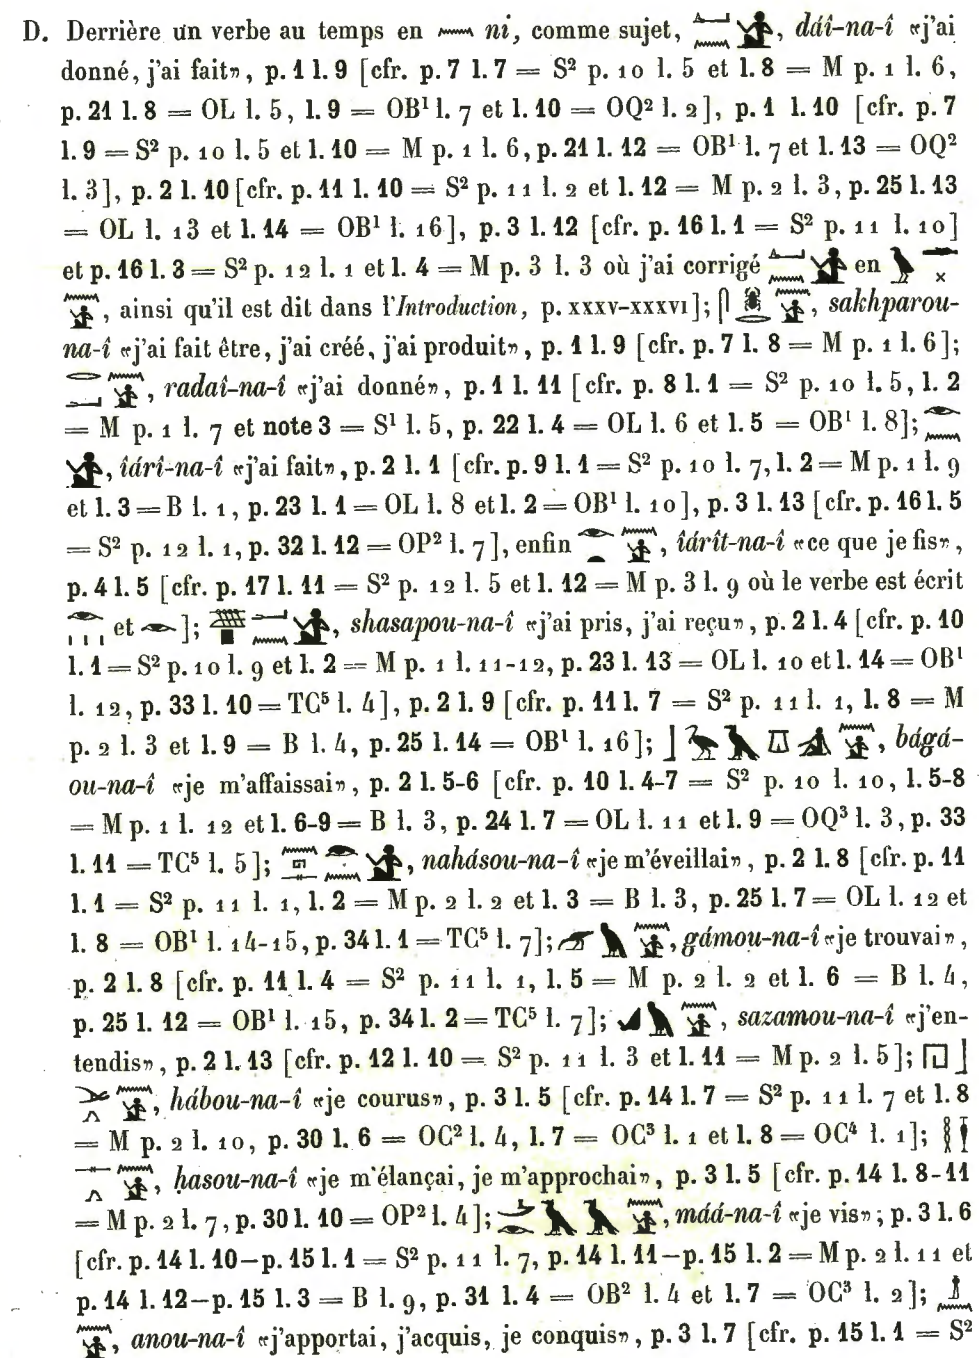 D. Derrière un verbe au temps en 𓈖 ni, comme sujet, 𓂞𓈖𓀀, dáî-na-î «j'ai
donné, j'ai fait», p. 1 l. 9 [cfr. p. 7 l. 7 = S² p. 10 l. 5 et l. 8 = M p. 1 l. 6,
p. 21 l. 8 = OL l. 5, l. 9 = OB¹ l. 7 et l. 10 = OQ² l. 2], p. 1 l. 10 [cfr. p. 7
l. 9 = S² p. 10 l. 5 et l. 10 = M p. 1 l. 6, p. 21 l. 12 = OB¹ l. 7 et l. 13 = OQ²
l. 3], p. 2 l. 10 [cfr. p. 11 l. 10 = S² p. 11 l. 2 et l. 12 = M p. 2 l. 3, p. 25 l. 13
= OL l. 13 et l. 14 = OB¹ l. 16], p. 3 l. 12 [cfr. p. 16 l. 1 = S² p. 11 l. 10]
et p. 16 l. 3 = S² p. 12 l. 1 et l. 4 = M p. 3 l. 3 où j'ai corrigé 𓂞𓈖𓀀 en 𓅓
𓈖𓀀, ainsi qu'il est dit dans l'Introduction, p. xxxv-xxxvi]; 𓋴𓆣𓂋𓈖𓀀, sakhparou-
na-î «j'ai fait être, j'ai créé, j'ai produit», p. 1 l. 9 [cfr. p. 7 l. 8 = M p. 1 l. 6];
𓂋𓂞𓈖𓀀, radaî-na-î «j'ai donné», p. 1 l. 11 [cfr. p. 8 l. 1 = S² p. 10 l. 5, l. 2
= M p. 1 l. 7 et note 3 = S¹ l. 5, p. 22 l. 4 = OL l. 6 et l. 5 = OB¹ l. 8]; 𓁹𓈖
𓀀, îárî-na-î «j'ai fait», p. 2 l. 1 [cfr. p. 9 l. 1 = S² p. 10 l. 7, l. 2 = M p. 1 l. 9
et l. 3 = B l. 1, p. 23 l. 1 = OL l. 8 et l. 2 = OB¹ l. 10], p. 3 l. 13 [cfr. p. 16 l. 5
= S² p. 12 l. 1, p. 32 l. 12 = OP² l. 7], enfin 𓁹𓏏𓈖𓀀, îárît-na-î «ce que je fis»,
p. 4 l. 5 [cfr. p. 17 l. 11 = S² p. 12 l. 5 et l. 12 = M p. 3 l. 9 où le verbe est écrit
𓁹𓏏𓏥 et 𓁹]; 𓈖𓀀, shasapou-na-î «j'ai pris, j'ai reçu», p. 2 l. 4 [cfr. p. 10
l. 1 = S² p. 10 l. 9 et l. 2 = M p. 1 l. 11-12, p. 23 l. 13 = OL l. 10 et l. 14 = OB¹
l. 12, p. 33 l. 10 = TC⁵ l. 4], p. 2 l. 9 [cfr. p. 11 l. 7 = S² p. 11 l. 1, l. 8 = M
p. 2 l. 3 et l. 9 = B l. 4, p. 25 l. 14 = OB¹ l. 16]; 𓃀𓅡𓄿𓎼𓈖𓀀, bágá-
ou-na-î «je m'affaissai», p. 2 l. 5-6 [cfr. p. 10 l. 4-7 = S² p. 10 l. 10, l. 5-8
= M p. 1 l. 12 et l. 6-9 = B l. 3, p. 24 l. 7 = OL l. 11 et l. 9 = OQ³ l. 3, p. 33
l. 11 = TC⁵ l. 5]; 𓈖𓉔𓋴𓁹𓈖𓀀, nahásou-na-î «je m'éveillai», p. 2 l. 8 [cfr. p. 11
l. 1 = S² p. 11 l. 1, l. 2 = M p. 2 l. 2 et l. 3 = B l. 3, p. 25 l. 7 = OL l. 12 et
l. 8 = OB¹ l. 14-15, p. 34 l. 1 = TC⁵ l. 7]; 𓅠𓅓𓈖𓀀, gámou-na-î «je trouvai»,
p. 2 l. 8 [cfr. p. 11 l. 4 = S² p. 11 l. 1, l. 5 = M p. 2 l. 2 et l. 6 = B l. 4,
p. 25 l. 12 = OB¹ l. 15, p. 34 l. 2 = TC⁵ l. 7]; 𓄔𓅓𓈖𓀀, sazamou-na-î «j'en-
tendis», p. 2 l. 13 [cfr. p. 12 l. 10 = S² p. 11 l. 3 et l. 11 = M p. 2 l. 5]; 𓉔𓃀
𓍁𓂻𓈖𓀀, hábou-na-î «je courus», p. 3 l. 5 [cfr. p. 14 l. 7 = S² p. 11 l. 7 et l. 8
= M p. 2 l. 10, p. 30 l. 6 = OC² l. 4, l. 7 = OC³ l. 1 et l. 8 = OC⁴ l. 1]; 𓎛
𓊃𓂻𓈖𓀀, ḥasou-na-î «je m'élançai, je m'approchai», p. 3 l. 5 [cfr. p. 14 l. 8-11
= M p. 2 l. 7, p. 30 l. 10 = OP² l. 4]; 𓌳𓁹𓄿𓄿𓈖𓀀, máá-na-î «je vis»; p. 3 l. 6
[cfr. p. 14 l. 10–p. 15 l. 1 = S² p. 11 l. 7, p. 14 l. 11–p. 15 l. 2 = M p. 2 l. 11 et
p. 14 l. 12–p. 15 l. 3 = B l. 9, p. 31 l. 4 = OB² l. 4 et l. 7 = OC³ l. 2]; 𓏎𓈖
𓈖𓀀, anou-na-î «j'apportai, j'acquis, je conquis», p. 3 l. 7 [cfr. p. 15 l. 1 = S²